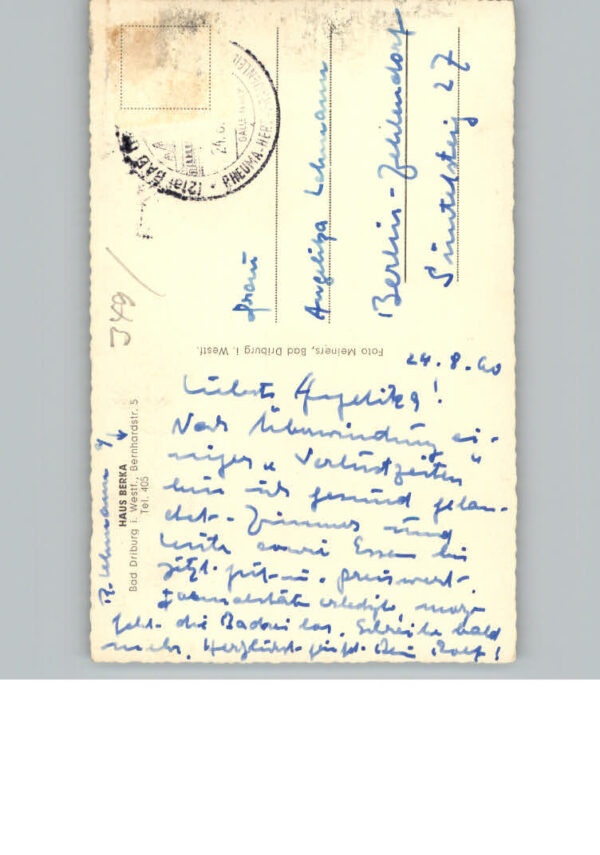 Frau
Angelika Lehmann
Berlin-Zehlendorf
Süntelsteig 27
(21a) BAD
24.8.
RHEUMA-HER
Foto Meiners, Bad Driburg i. Westf.
349/
R. Lehmann
HAUS BERKA
Bad Driburg i. Westf., Bernhardstr. 5
Tel. 405
24.8.60
Liebste Angelika!
Nach Überwindung ei-
niger „Verlustzeiten"
bin ich gesund gelan-
det. Zimmer und
Leute sowie Essen bis
jetzt gut u. preiswert.
Formalitäten erledigt, morgen
geht die Baderei los. Schreibe bald
mehr. Herzlichst grüßt Dein Rolf!